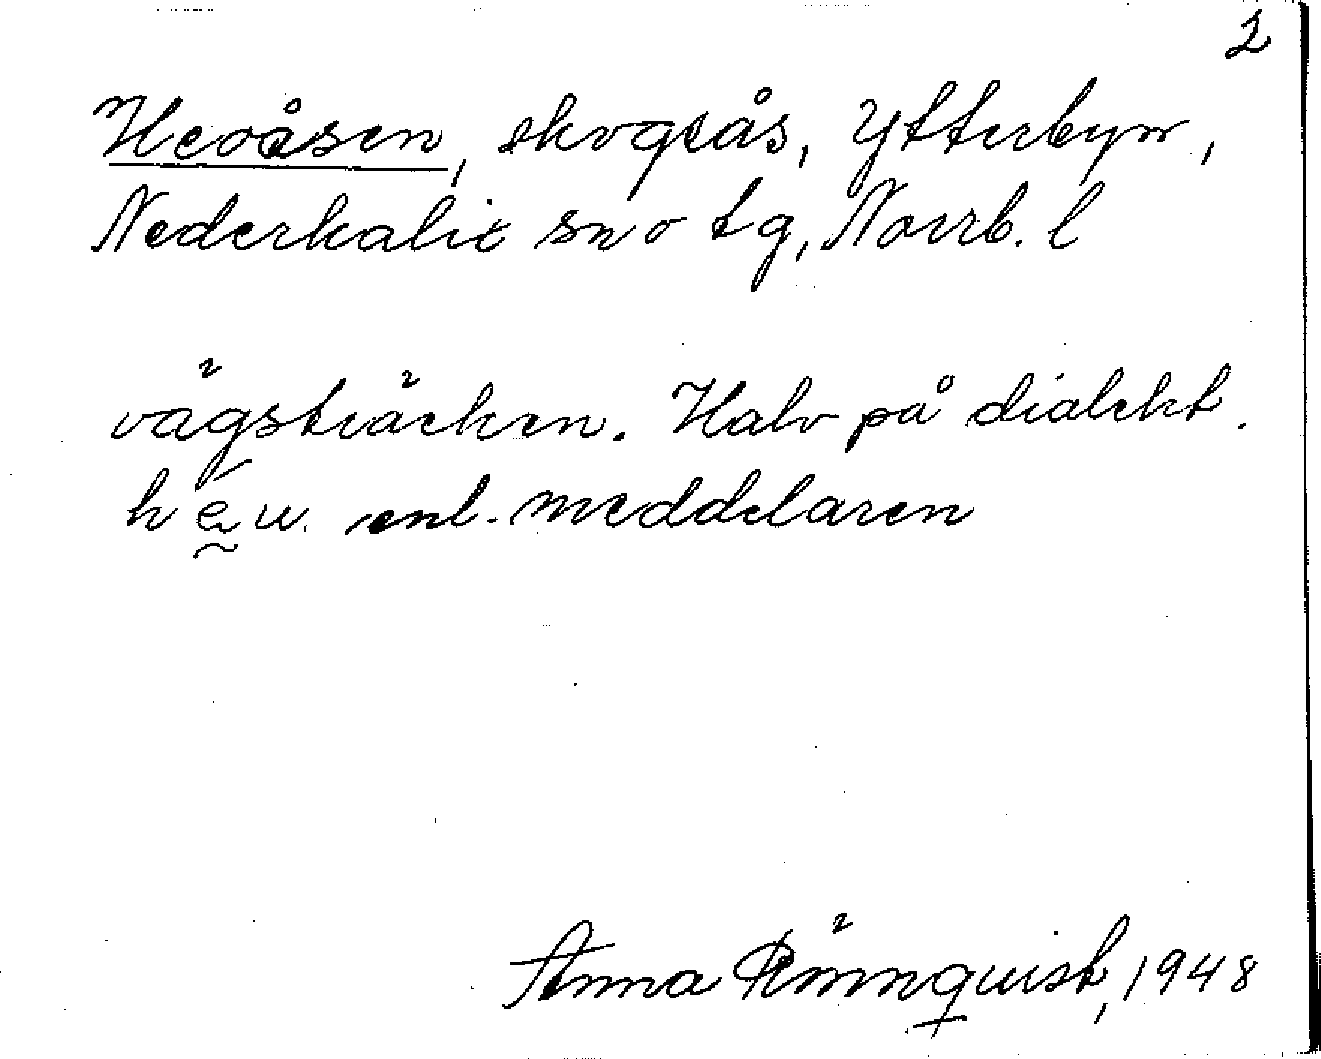 2
Heoåsen, skogsås, Ytterbyn,
Nederkalix sn o tg, Norrb. l
vägsträcken. Halv på dialekt.
h e w. enl. meddelaren
Anna Rönnquist, 1948